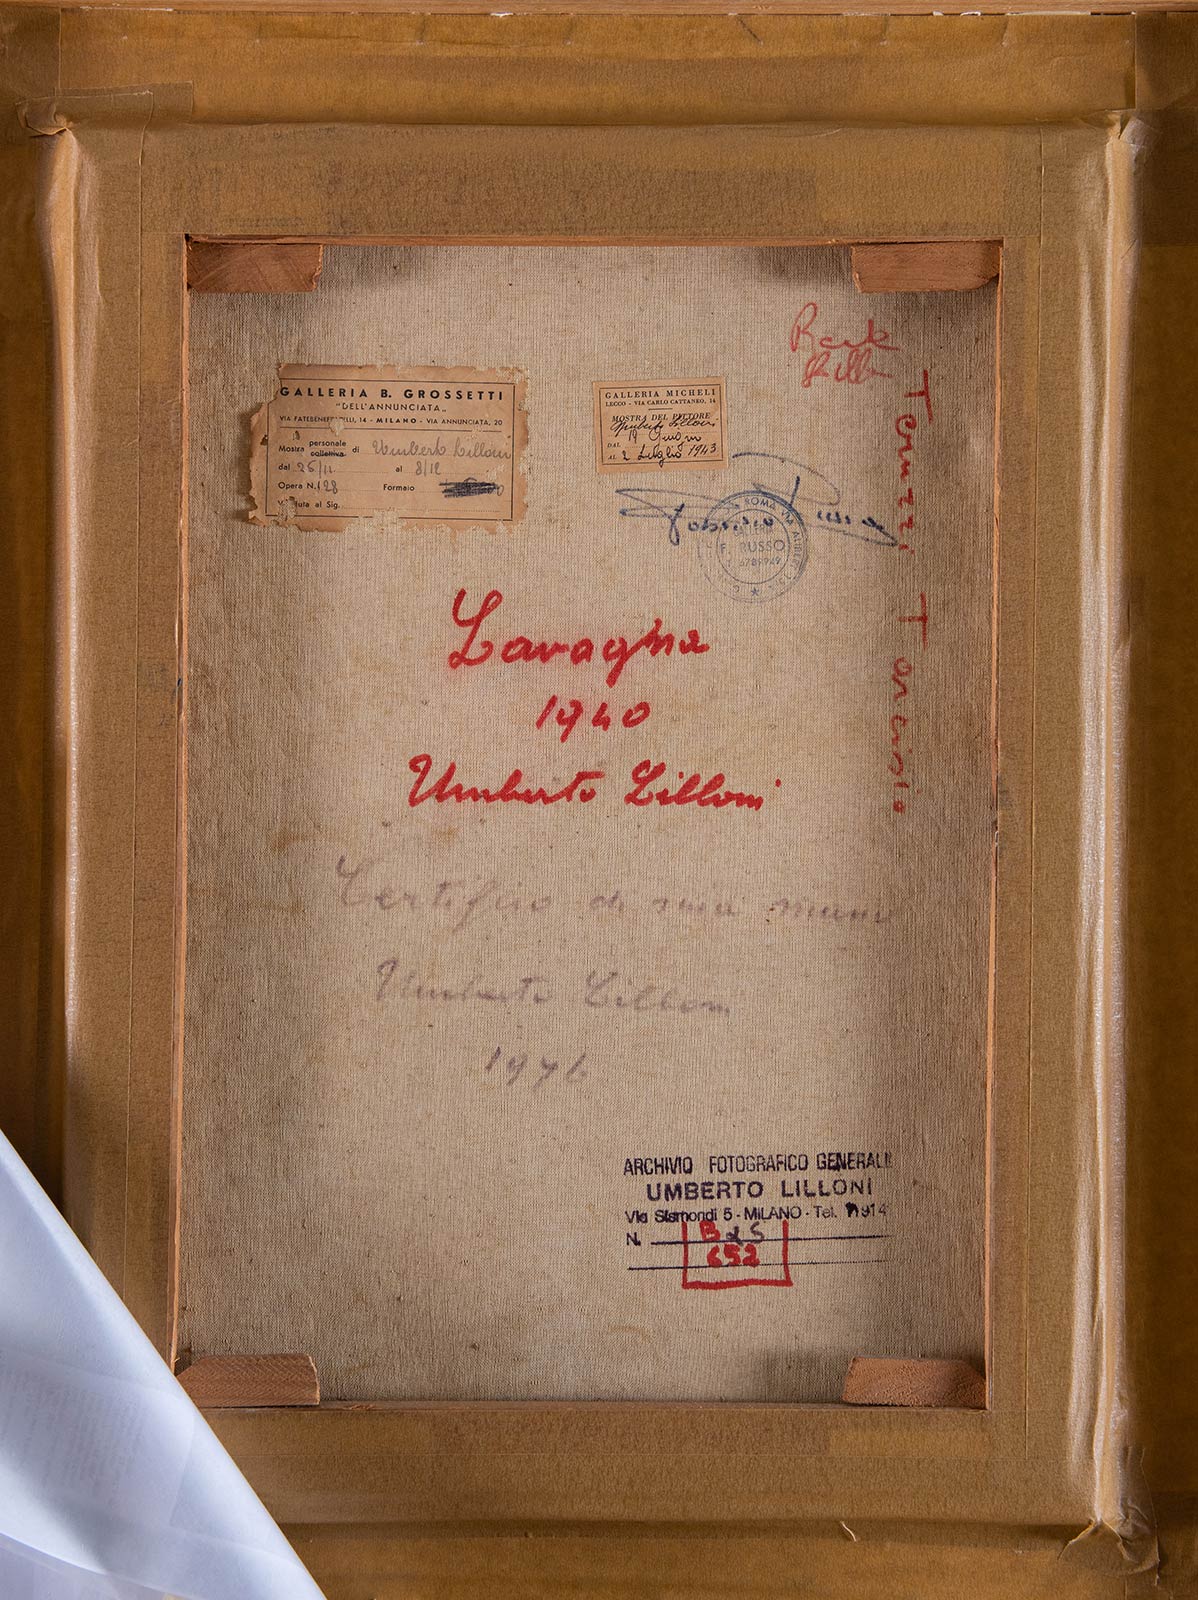 GALLERIA B. GROSSETTI
"DELL'ANNUNCIATA"
VIA FATEBENEFRATELLI, 14 - MILANO - VIA ANNUNCIATA, 20
Mostra personale collettiva di Umberto Lilloni
dal 26/11 al 8/12
Opera N. 128 Formato
Venduta al Sig.
GALLERIA MICHELI
LECCO - VIA CARLO CATTANEO, 14
MOSTRA DEL PITTORE
Umberto Lilloni
DAL 19 Giugno
AL 2 Luglio 1943
Fabrizio Russo
ROMA VIA ALIBERT
F. RUSSO
6789949
Terruzzi Tarcisio
Lavagna
1940
Umberto Lilloni
Certifico di mia mano
Umberto Lilloni
1976
ARCHIVIO FOTOGRAFICO GENERALE
UMBERTO LILLONI
Via Sismondi 5 - MILANO - Tel.
N.
652